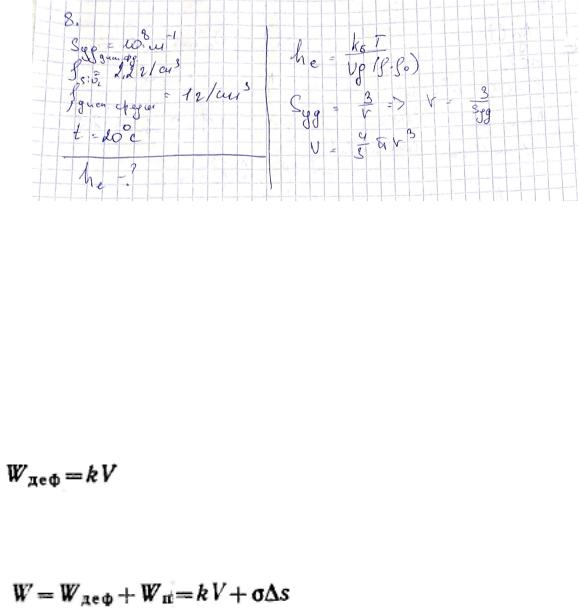 8.
Sуд дисп.ф = 10⁸ м⁻¹
ρ SiO₂ = 2,2 г/см³
ρ дисп среды = 1 г/см³
t = 20°C
hε - ?
hε = kб T / Vg(ρ-ρ₀)
Sуд = 3/r => r = 3/Sуд
V = 4/3 π r³
Wдеф = kV
W = Wдеф + Wп = kV + σΔs